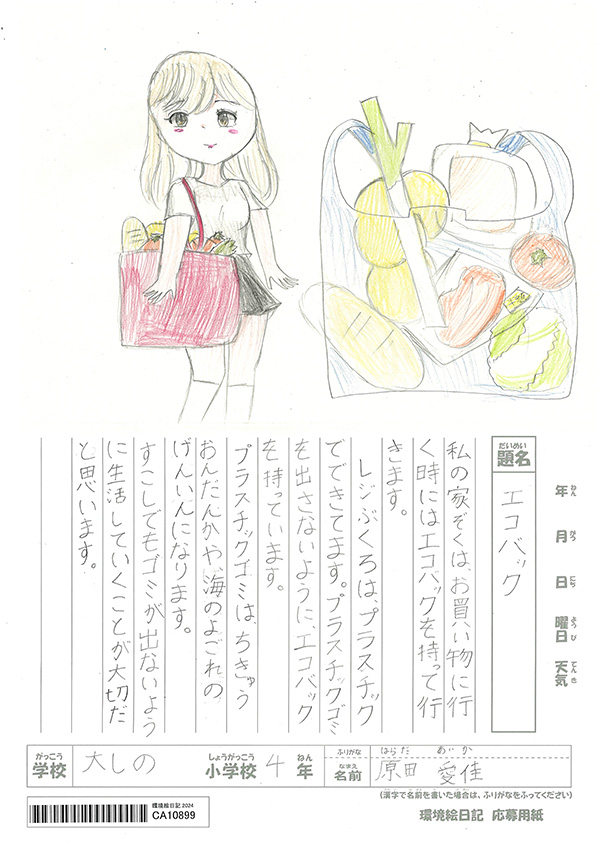 だいめい
題名
エコバック
年 ねん
月 がつ
日 にち
曜日 ようび
天気 てんき
私の家ぞくは、お買い物に行
く時にはエコバックを持って行
きます。
レジぶくろは、プラスチック
でできてます。プラスチックゴミ
を出さないように、エコバック
を持っています。
プラスチックゴミは、ちきゅう
おんだんかや、海のよごれの
げんいんになります。
すこしでもゴミが出ないよう
に生活していくことが大切だ
と思います。
がっこう
学校
大しの
しょうがっこう
小学校
4
ねん
年
ふりがな
はらだ あいか
なまえ
名前
原田 愛佳
(漢字で名前を書いた場合は、ふりがなをふってください)
環境絵日記 2024
CA10899
環境絵日記 応募用紙